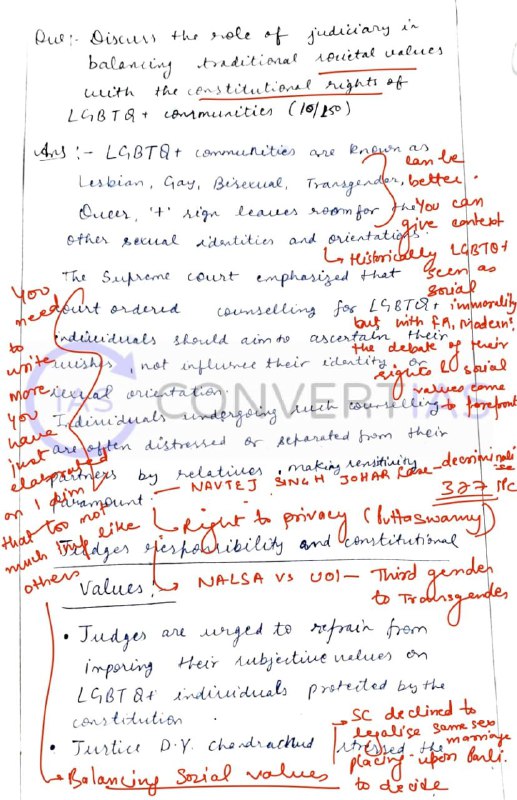 Que:- Discuss the role of judiciary in
balancing traditional societal values
with the constitutional rights of
LGBTQ+ communities (10/150)
Ans :- LGBTQ+ communities are known as
Lesbian, Gay, Bisexual, Transgender,
Queer, '+' sign leaves room for the
other sexual identities and orientations.
can be
better.
You can
give context
Historically LGBTQ+
seen as
social
immorality
but with F.R, Modern
the debate of their
rights & social
values come
to forefront
The Supreme court emphasized that
court ordered counselling for LGBTQ+
individuals should aim to ascertain their
wishes, not influence their identity or
sexual orientation.
Individuals undergoing such counselling
are often distressed or separated from their
partners by relatives, making sensitivity
paramount.
You
need
to
write
more
you
have
just
elaborated
on 1 dim
that too not
much imp like
others
IAS
CONVERT IAS
NAVTEJ SINGH JOHAR case - decriminalise
377 IPC
Right to privacy (Puttaswamy)
Judges responsibility and constitutional
Values.
NALSA vs UOI - Third gender
to Transgender
• Judges are urged to refrain from
imposing their subjective values on
LGBTQ+ individuals protected by the
constitution.
• Justice D.Y. Chandrachud stressed the
SC declined to
legalise same sex
marriage
placing upon Parli.
to decide
Balancing Social values